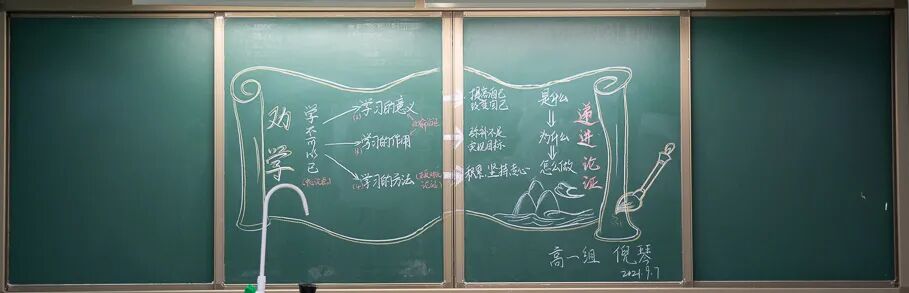 劝学
学不可以已
(中心论点)
学习的意义
(2)
学习的作用
(3)
学习的方法
(4)
提高自己
改变自己
弥补不足
实现目标
积累、坚持、专心
是什么
为什么
怎么做
递进论证
高一组 倪琴
2021.9.7